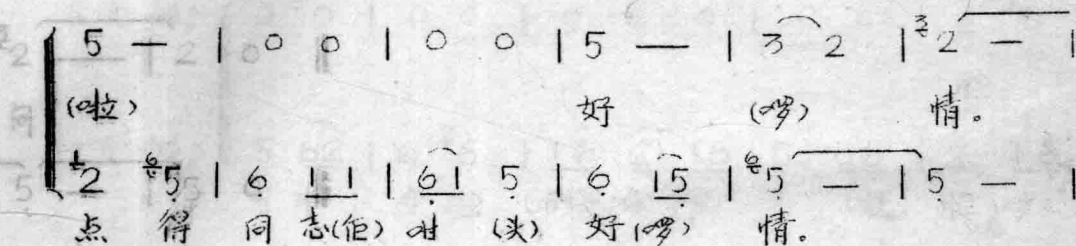 5 — | 0 0 | 0 0 | 5 — | 3 2 | 3 2 — |
(啦) 好 (啰) 情。
1 2 6 5 | 6 1 1 | 6 1 5 | 6 1 5 | 6 5 — | 5 — |
点 得 同 志(佢) 咁 (头) 好(啰) 情。